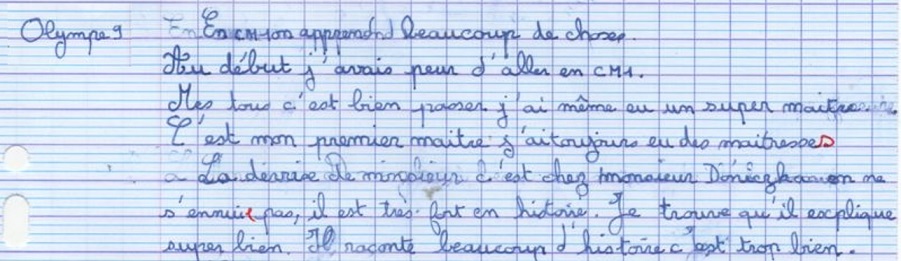 Olympe 9 En En CM1 on apprend beaucoup de choses.
Au début j'avais peur d'aller en CM1.
Mes tous c'est bien passer j'ai même eu un super maitre
C'est mon premier maitre j'ai toujours eu des maitresses
La devise de monsieur c'est chez monsieur on ne
s'ennuie pas, il est très fort en histoire. Je trouve qu'il explique
super bien. Il raconte beaucoup d'histoire c'est trop bien.